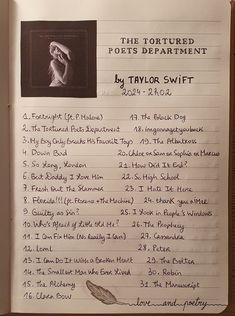 THE TORTURED
POETS DEPARTMENT
by TAYLOR SWIFT
2024 - 2h02
1. Fortnight (ft. P. Malone)
2. The Tortured Poets Department
3. My Boy Only Breaks His Favorite Toys
4. Down Bad
5. So Long, London
6. But Daddy I Love Him
7. Fresh Out The Slammer
8. Florida!!! (ft. Florence + the Machine)
9. Guilty as Sin?
10. Who's Afraid of Little Old Me?
11. I Can Fix Him (No Really I Can)
12. loml
13. I Can Do It With a Broken Heart
14. the Smallest Man Who Ever Lived
15. The Alchemy
16. Clara Bow
17. the Black Dog
18. imgonnagetyouback
19. The Albatross
20. Chloe or Sam or Sophia or Marcus
21. How Did It End?
22. So High School
23. I Hate It Here
24. thank you aIMee
25. I Look in People's Windows
26. The Prophecy
27. Cassandra
28. Peter
29. The Bolter
30. Robin
31. The Manuscript
love and poetry